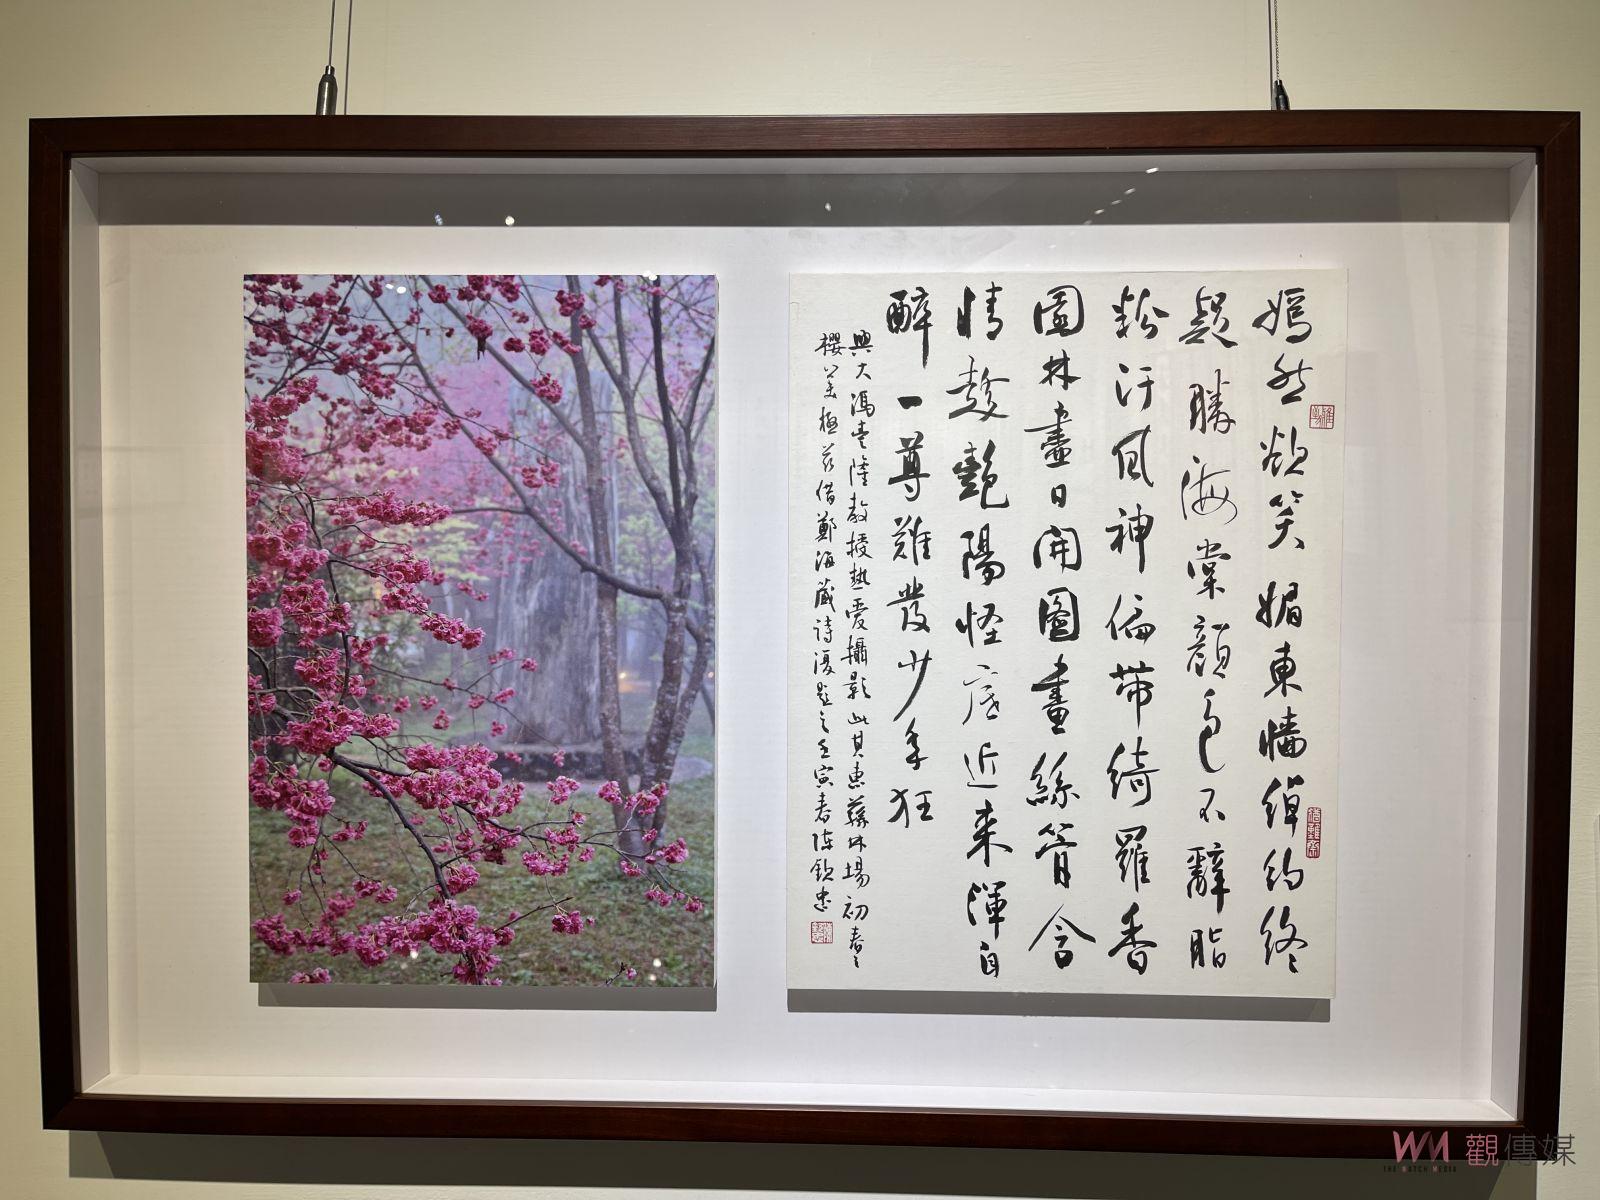 嫣然欲笑媚東牆綽約終
疑勝海棠顏色不辭脂
粉汙風神偏帶綺羅香
園林盡日開圖畫絲管含
情趁艷陽怪底近來渾自
醉一尊難發少年狂
興大馮豊隆教授熱愛攝影此其惠蓀林場初春之
櫻美極茲借鄭海藏詩漫題之壬寅春陳欽忠
WM 觀傳媒
THE WATCH MEDIA